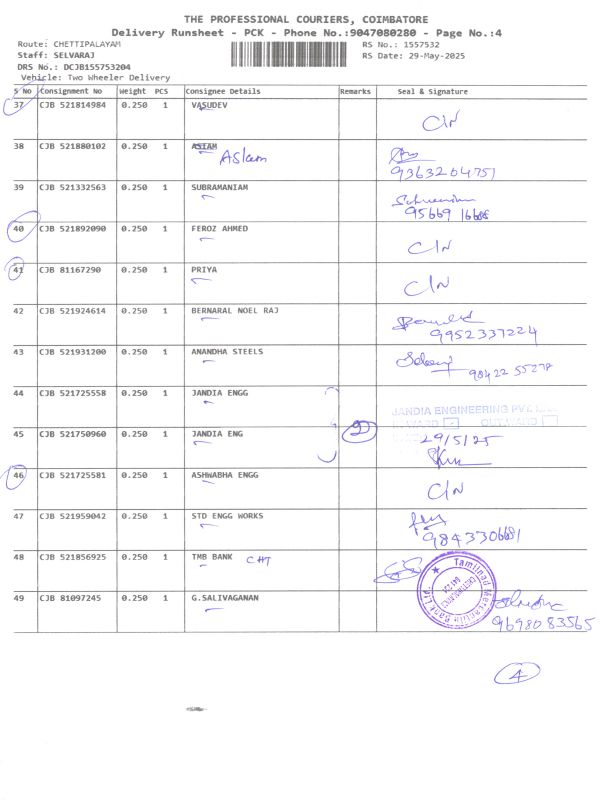 THE PROFESSIONAL COURIERS, COIMBATORE
Delivery Runsheet - PCK - Phone No.:9047080280 - Page No.:4
Route: CHETTIPALAYAM
RS No.: 1557532
Staff: SELVARAJ
RS Date: 29-May-2025
DRS No.: DCJB155753204
Vehicle: Two Wheeler Delivery
S No Consignment No Weight PCS Consignee Details Remarks Seal & Signature
37 CJB 521814984 0.250 1 VASUDEV
C/N
38 CJB 521880102 0.250 1 ASIAM
Aslam
9363204751
39 CJB 521332563 0.250 1 SUBRAMANIAM
95669 16686
40 CJB 521892090 0.250 1 FEROZ AHMED
C/N
41 CJB 81167290 0.250 1 PRIYA
C/N
42 CJB 521924614 0.250 1 BERNARAL NOEL RAJ
9952337224
43 CJB 521931200 0.250 1 ANANDHA STEELS
98422 55278
44 CJB 521725558 0.250 1 JANDIA ENGG
JANDIA ENGINEERING PVT.
INWARD OUTWARD
45 CJB 521750960 0.250 1 JANDIA ENG 2
29/5/25
46 CJB 521725581 0.250 1 ASHWABHA ENGG
C/N
47 CJB 521959042 0.250 1 STD ENGG WORKS
9843306681
48 CJB 521856925 0.250 1 TMB BANK CHT
Tamilnad Mercantile Bank Ltd.
49 CJB 81097245 0.250 1 G.SALIVAGANAN
9698083565
4